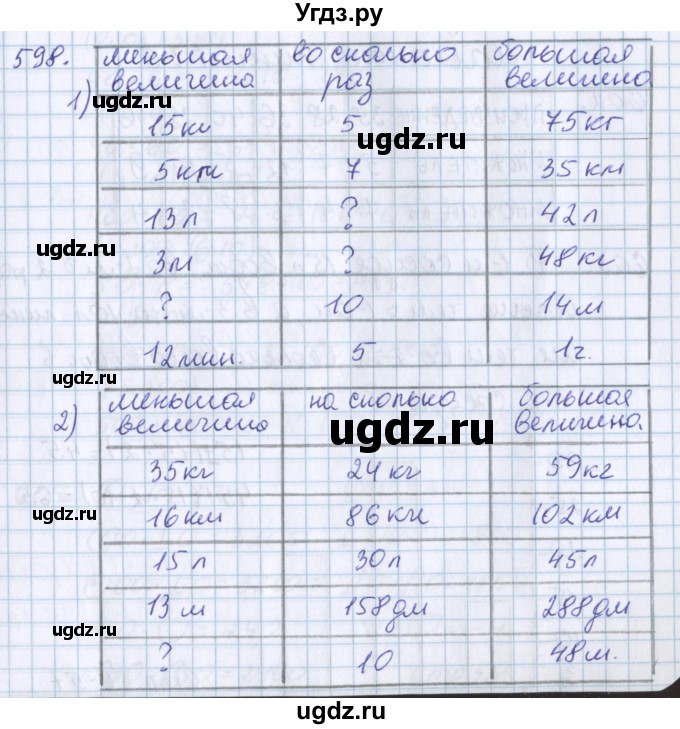 Угдз.ру
598.
1)
меньшая величина во сколько раз большая величина
15 кг 5 75 кг
5 км 7 35 км
13 л ? 42 л
3 м ? 48 кг
? 10 14 м
12 мин. 5 1 г.
2)
меньшая величина на сколько большая величина.
35 кг 24 кг 59 кг
16 км 86 км 102 км
15 л 30 л 45 л
13 м 158 дм 288 дм
? 10 48 м.
ugdz.ru
ugdz.ru
ugdz.ru
ugdz.ru
ugdz.ru
ugdz.ru
ugdz.ru
ugdz.ru
ugdz.ru
ugdz.ru
ugdz.ru
ugdz.ru
ugdz.ru